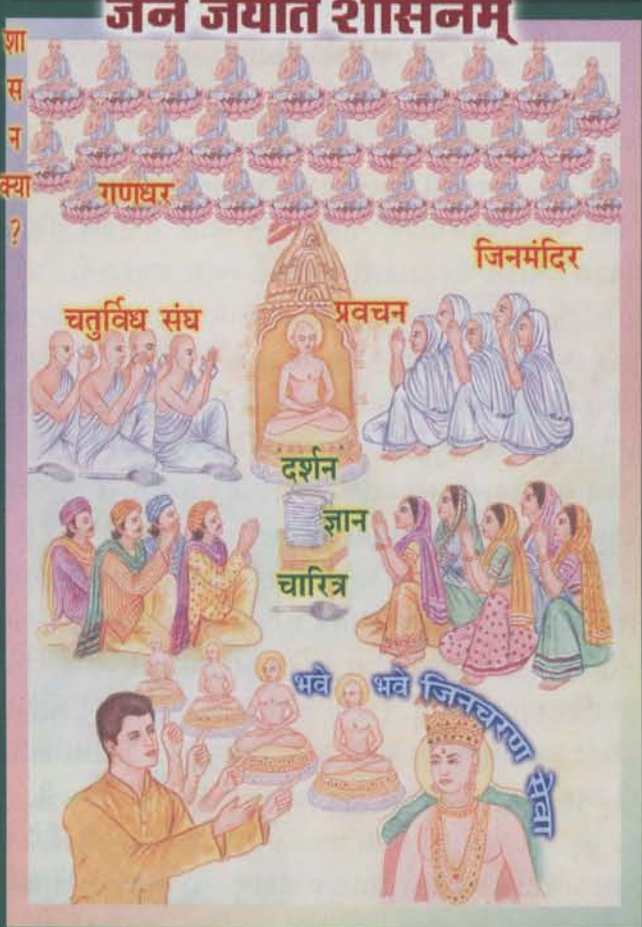 जैन जयति शासनम्
शासन क्या ?
गणधर
जिनमंदिर
चतुर्विध संघ
प्रवचन
दर्शन
ज्ञान
चारित्र
भवे भवे जिनचरण सेवा